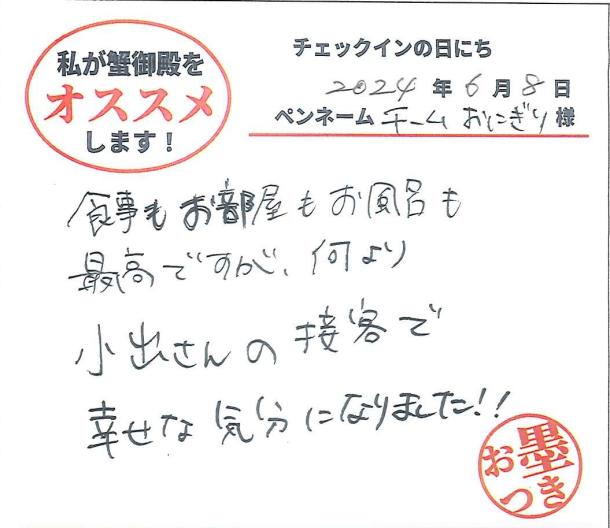 私が蟹御殿を
オススメ
します！
チェックインの日にち
2024年6月8日
ペンネーム チームおにぎり様
食事もお部屋もお風呂も
最高ですが、何より
小出さんの接客で
幸せな気分になりました!!
お墨
つき